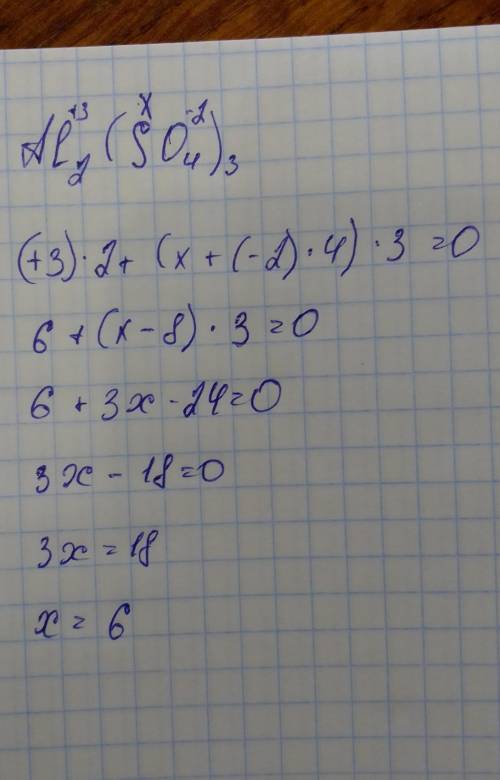 Al₂⁺³(SˣO₄⁻²)₃
(+3)·2+ (x + (-2)·4)·3 =0
6 + (x - 8)·3 =0
6 + 3x - 24=0
3x - 18=0
3x = 18
x = 6